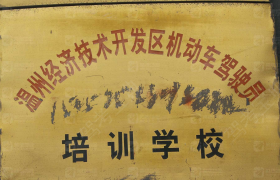 温州经济技术开发区机动车驾驶员
培训学校